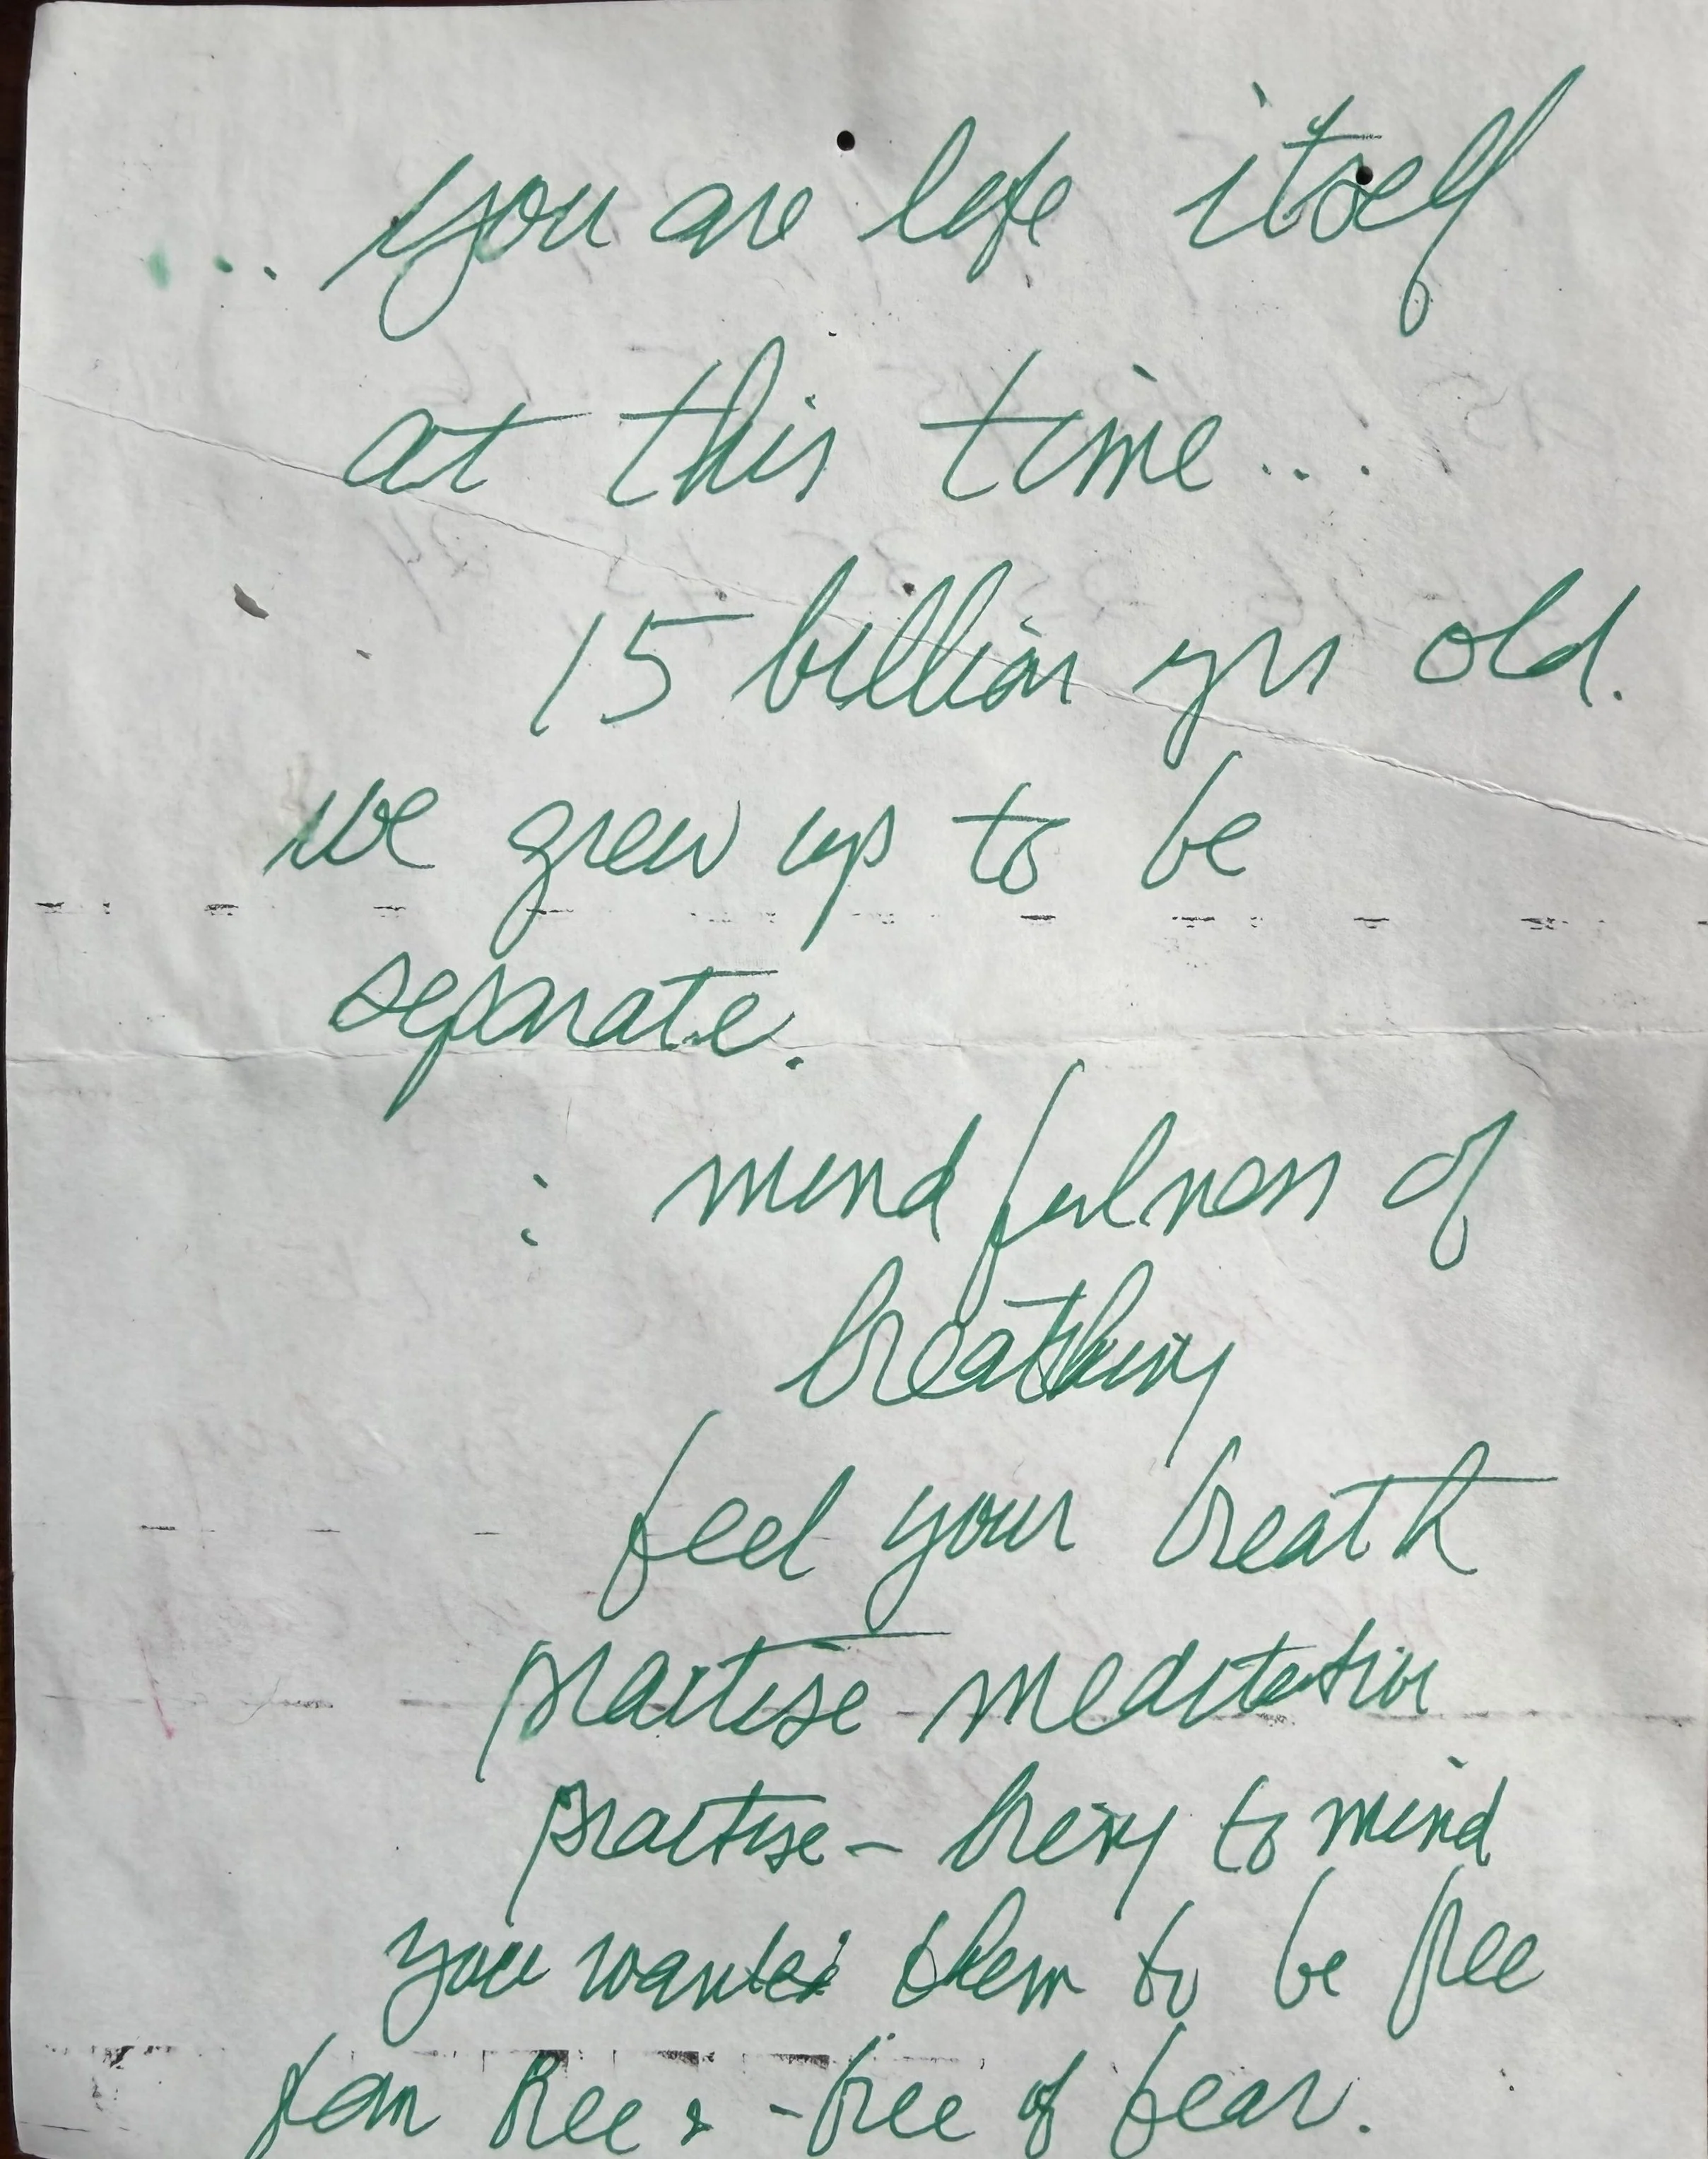 ... you are life itself
at this time...
15 billion yrs old.
we grew up to be
separate.
: mindfulness of
breathing
feel your breath
practise meditation
practise - bring to mind
you wanted them to be free
free & - free of fear.